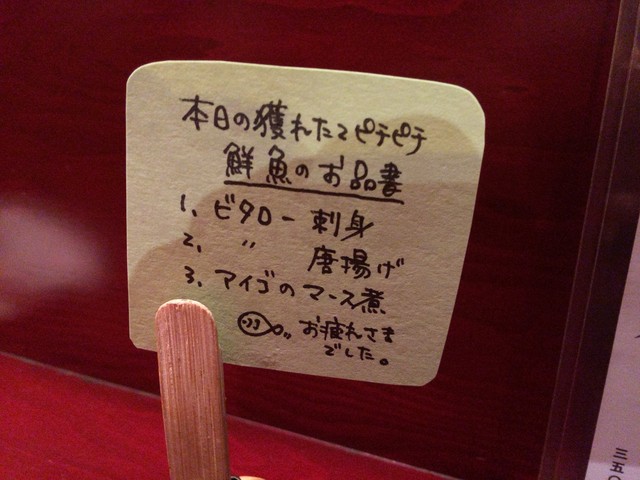 本日の獲れたてピチピチ
鮮魚のお品書
1. ビタロー 刺身
2. 〃 唐揚げ
3. アイゴのマース煮
お疲れさま
でした。
三五〇